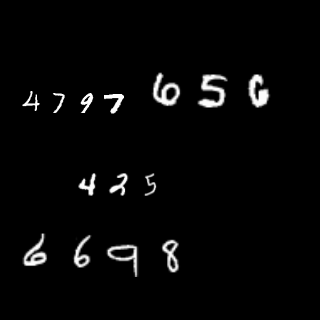 4797
656
425
6698